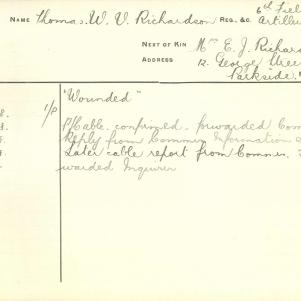 NAME Thomas. W. V. Richardson REG., &C. 6th Fiel
Artiller
NEXT OF KIN Mrs E. J. Richard
ADDRESS 12. George Stree
Parkside.
"Wounded"
8. 1/P P/Cable. confirmed. forwarded Com
Reply from Commun Information
Later cable report from Commun.
warded Inquirer